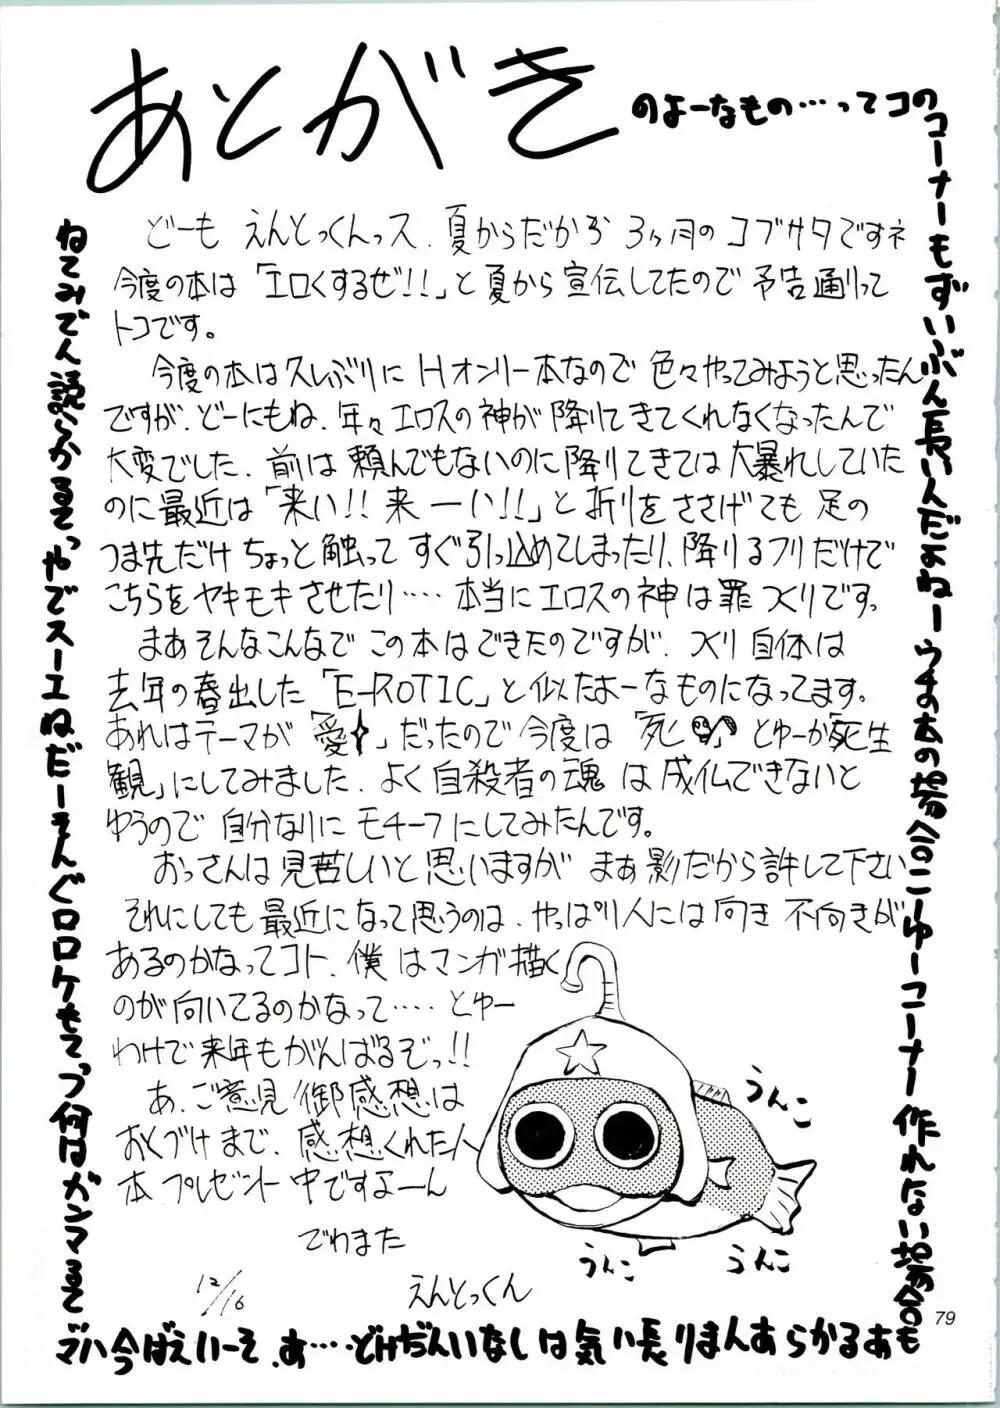 あとがき
のよーなもの…ってコの
コーナーもずいぶん長いんだよねーウチの本の場合こーゆーコーナー作れない場合も
あるからあんまり長い気はしないんだけど…。あ、そーいえば今ハマ
ってるマンガは何って
どーも えんとっくんっス、夏からだから 3ヶ月のゴブサタですネ
今度の本は「エロくするぜ!!」と夏から宣伝してたので 予告通りって
トコです。
今度の本は久しぶりに Hオンリー本なので 色々やってみようと思ったん
ですが、どーにもね、年々エロスの神が降りてきてくれなくなったんで
大変でした、前は頼んでもないのに降りてきては大暴れしていた
のに最近は「来い!!来ーい!!」と祈りをささげても 足の
つま先だけ ちょっと触って すぐ引っ込めてしまったり、降りるフリだけで
こちらをヤキモキさせたり…. 本当にエロスの神は罪つくりですっ
まあそんなこんなで この本はできたのですが、つくり自体は
去年の春出した「E-ROTIC」と似たよーなものになってます。
あれはテーマが「愛」だったので今度は「死」とゆーか「死生
観」にしてみました、よく自殺者の魂は成仏できないと
ゆうので 自分なりに モチーフにしてみたんです。
おっさんは見苦しいと思いますが まぁ影だから許して下さい
それにしても最近になって思うのは、やっぱり人には向き不向きが
あるのかなってコト、僕はマンガ描く
のが向いてるのかなって…. とゆー
わけで来年もがんばるぞっ!!
あ、ご意見御感想は
おくづけまで、感想くれた人
本プレゼント中ですよーん
でわまた
12/16
えんとっくん
うんこ
うんこ
うんこ
79